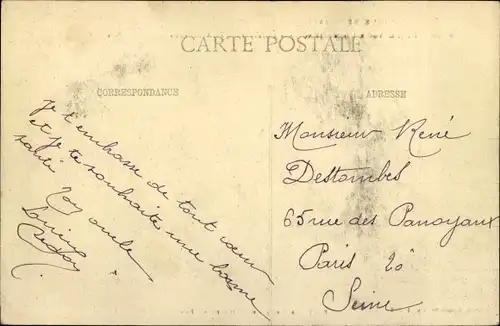 CARTE POSTALE
CORRESPONDANCE
Je t'embrasse de tout cœur
et je te souhaite une bonne
santé
Ton oncle
ADRESSE
Monsieur René
Destombes
65 rue des Panoyaux
Paris 20
Seine